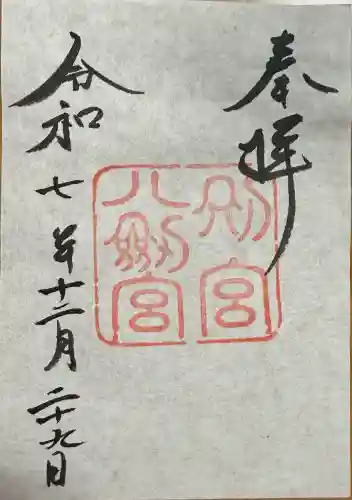 奉拝
別宮
八剱宮
令和七年十二月二十九日